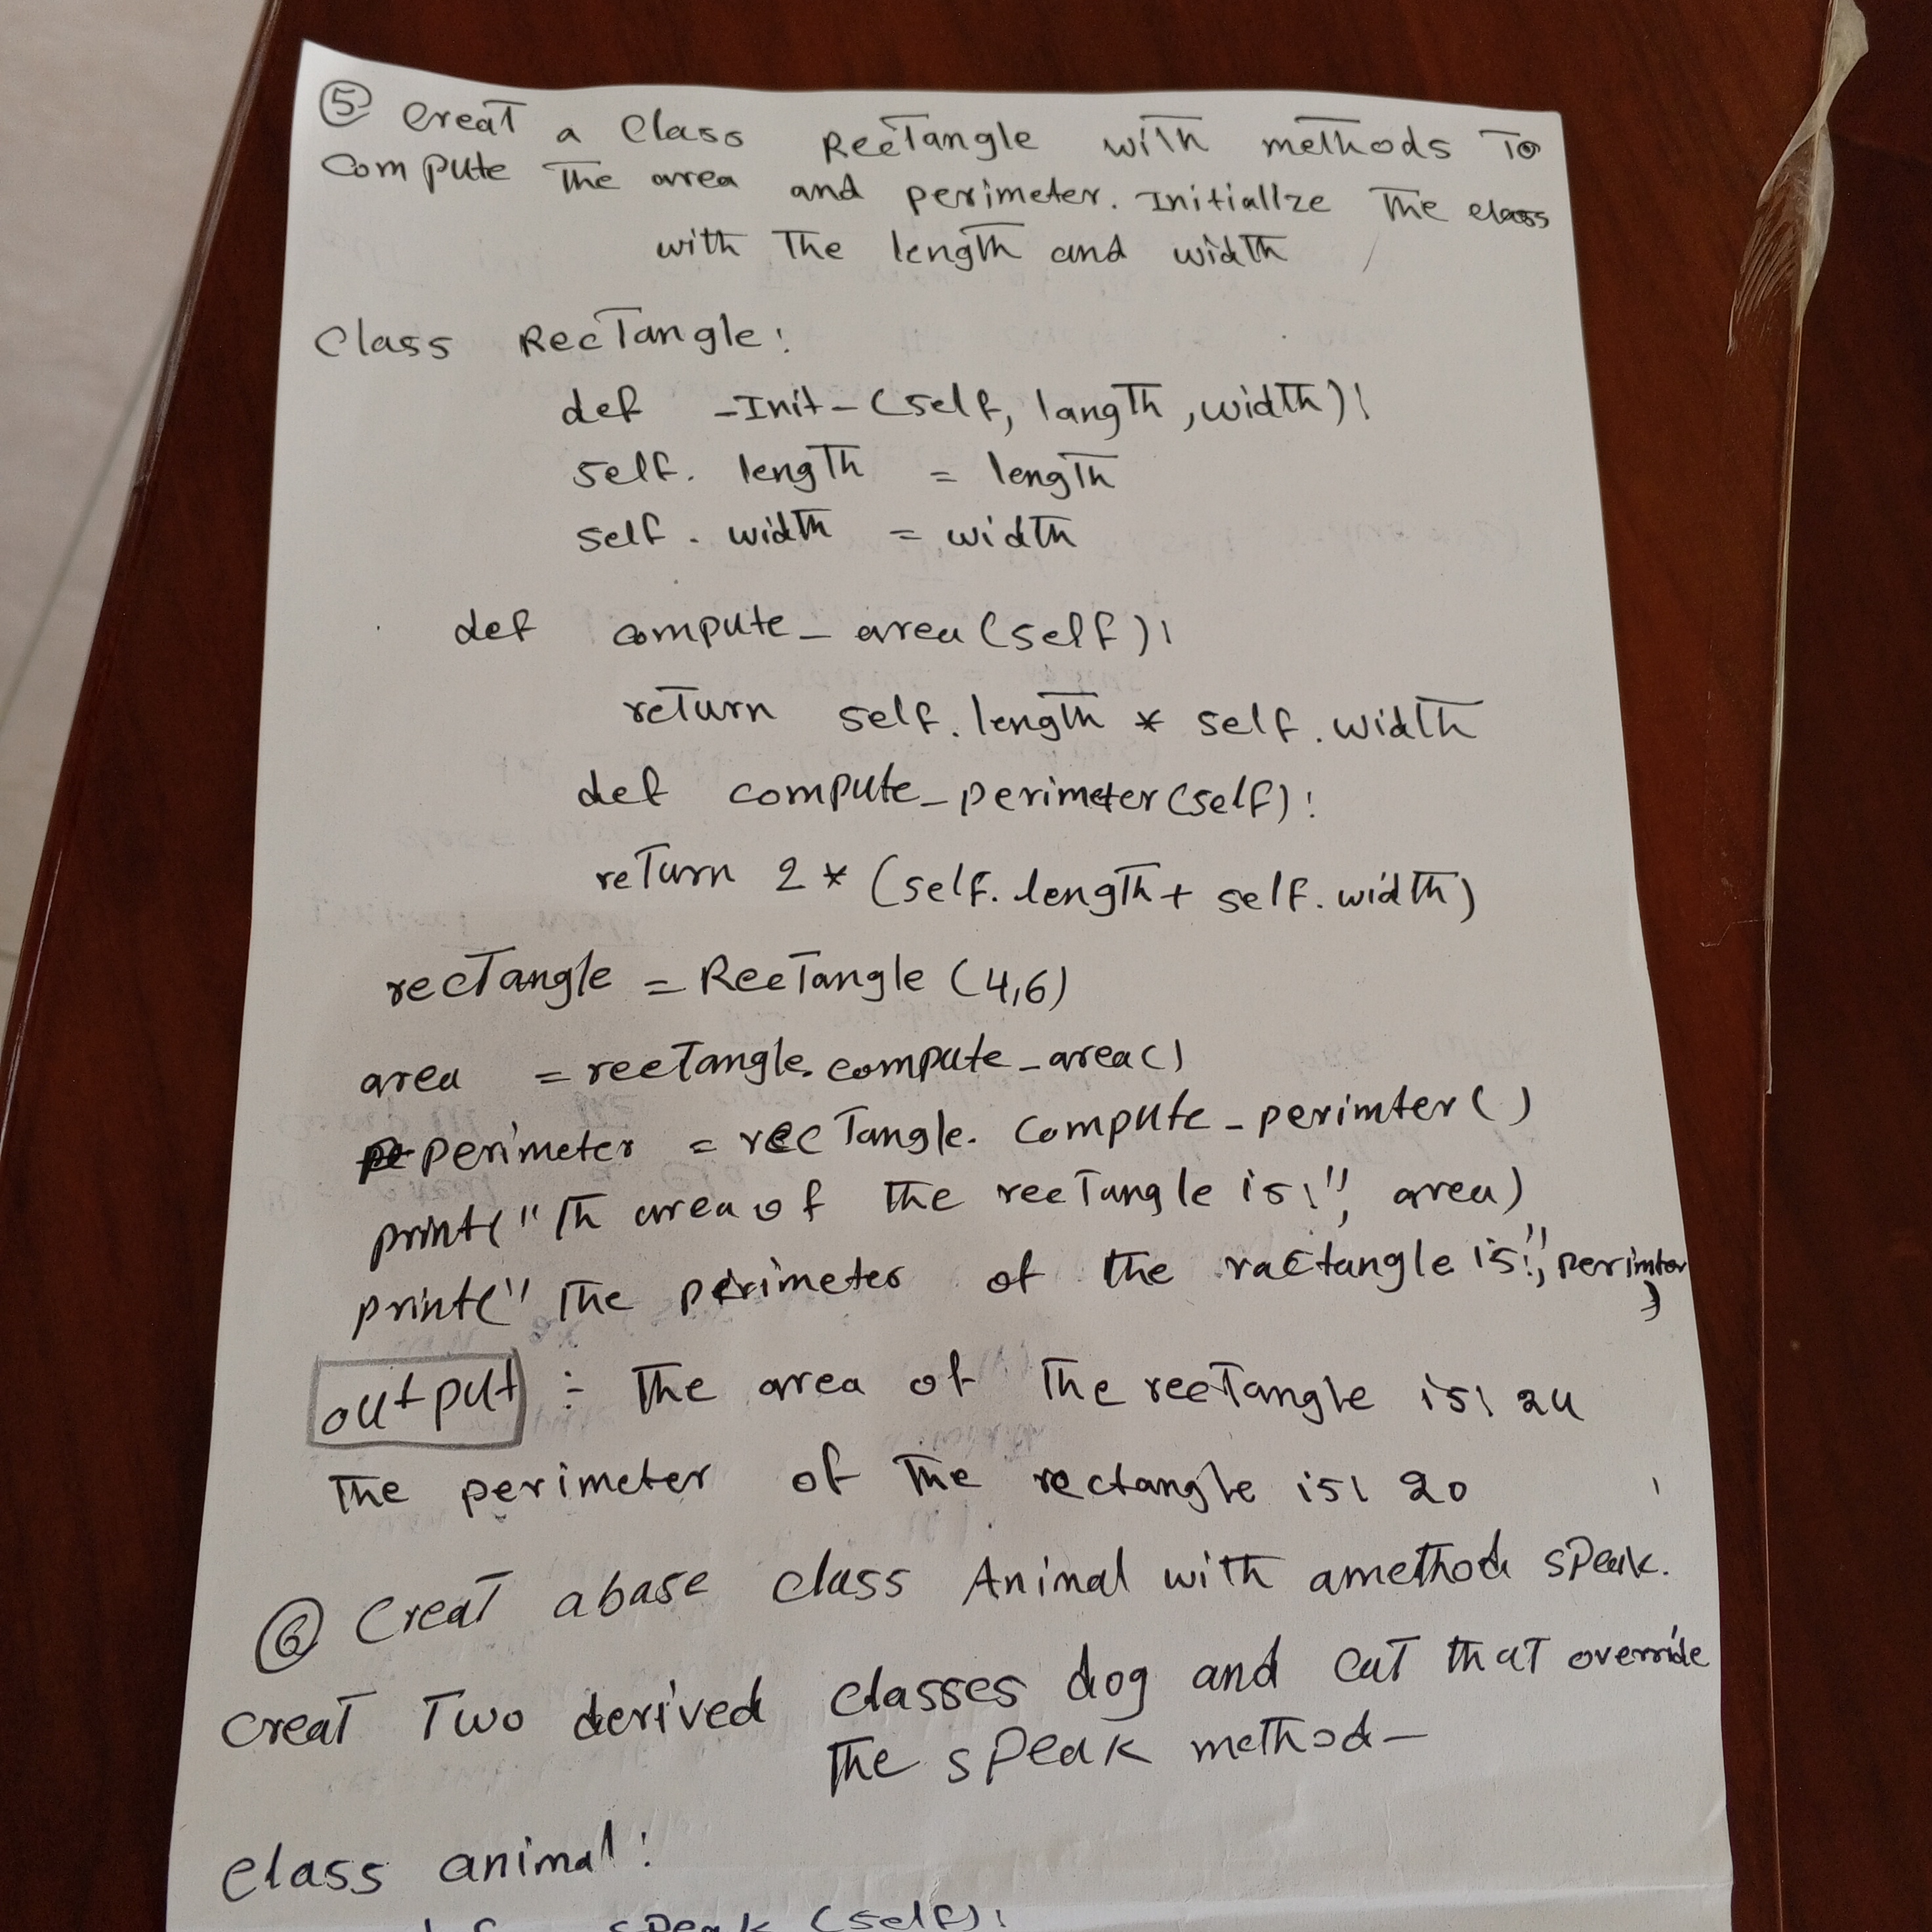 ⑤ Creat a Class Rectangle with methods To
compute The area and perimeter. Initiallze The class
with The length and width
Class Rectangle:
def -Init-(self, langth, width):
self. length = length
self. width = width
def compute_area(self):
return self.length * self.width
def compute_perimeter(self):
return 2 * (self.length + self.width)
rectangle = Rectangle (4,6)
area = rectangle.compute_area()
perimeter = rectangle. compute_perimter()
print("Th area of the rectangle is:", area)
print(" The perimeter of the ractangle is:", perimter)
output : The area of The rectangle is: 24
The perimeter of The rectangle is: 20
⑥ Creat abase class Animal with amethod speak.
creat Two derived classes dog and cat that override
The speak method-
class animal:
def speak (self):